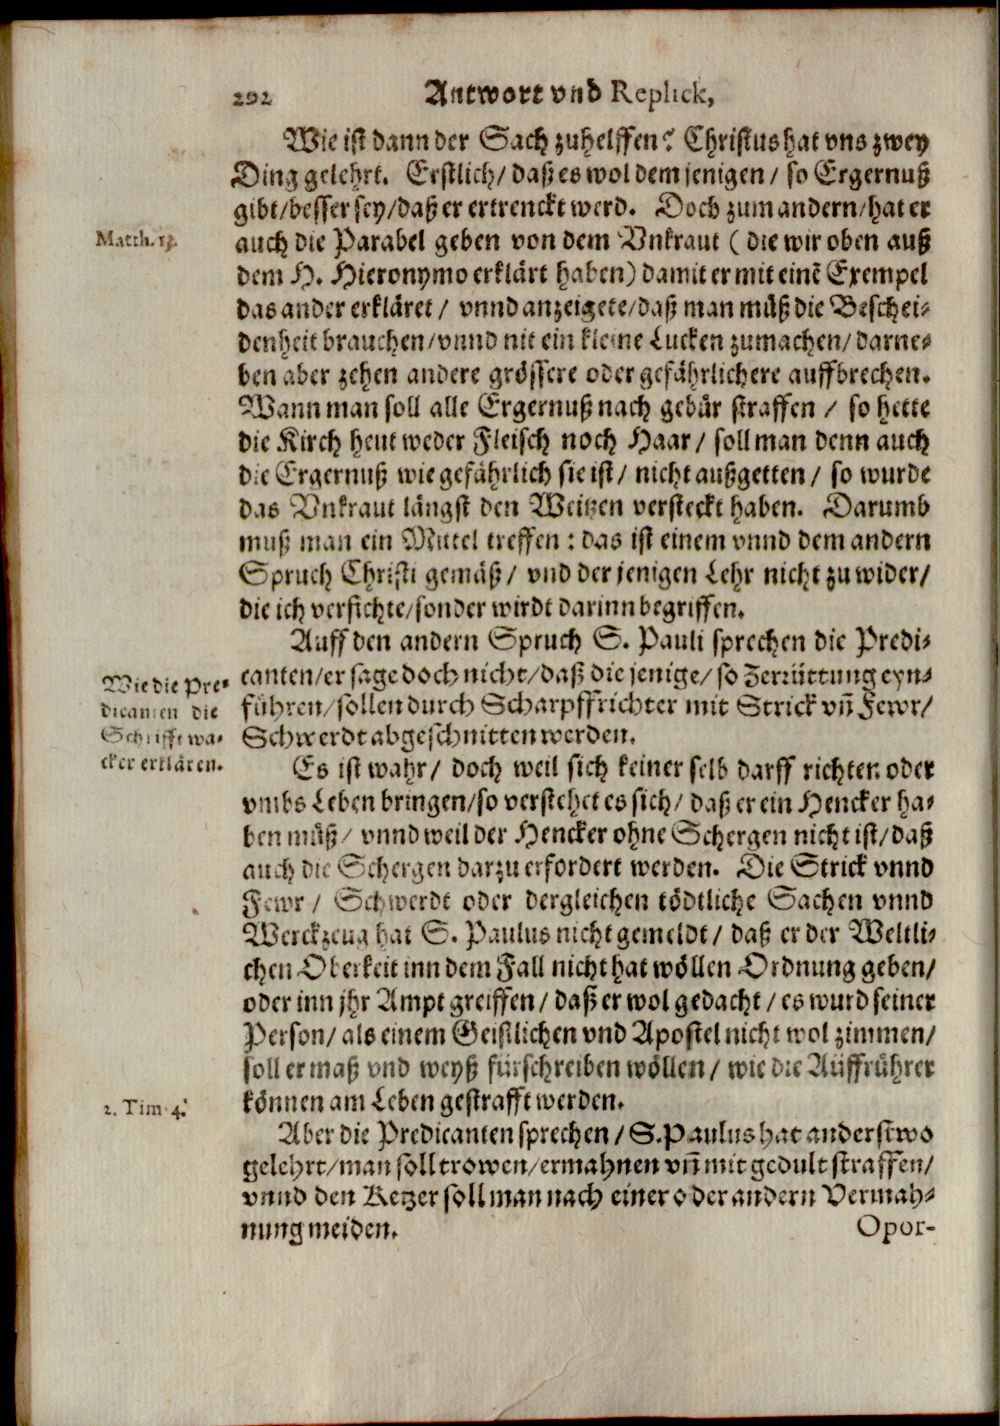 292 Antwort vnd Replick,
Wie ist dann der Sach zuhelffen? Christus hat vns zwey
Ding gelehrt. Erstlich/ daß es wol dem jenigen / so Ergernuß
gibt/besser sey/daß er ertrenckt werd. Doch zum andern/hat er
Matth. 13.
auch die Parabel geben von dem Vnkraut ( die wir oben auß
dem H. Hieronymo erklärt haben) damit er mit einẽ Exempel
das ander erkläret / vnnd anzeigete/daß man müß die Beschei-
denheit brauchen/vnnd nit ein kleine Lucken zumachen/ darne-
ben aber zehen andere grössere oder gefährlichere auffbrechen.
Wann man soll alle Ergernuß nach gebür straffen / so hette
die Kirch heut weder Fleisch noch Haar / soll man denn auch
die Ergernuß wie gefährlich sie ist/ nicht außgetten / so wurde
das Vnkraut längst den Weitzen versteckt haben. Darumb
muß man ein Mittel treffen : das ist einem vnnd dem andern
Spruch Christi gemäß / vnd der jenigen Lehr nicht zu wider/
die ich versichte/sonder wirdt darinn begriffen.
Auff den andern Spruch S. Pauli sprechen die Predi-
Wie die Pre-
dicanten die
Schrifft wa-
cker erklären.
canten/er sage doch nicht/daß die jenige/ so Zerrüttung eyn-
führen/sollen durch Scharpffrichter mit Strick vñ Fewr/
Schwerdt abgeschnitten werden.
Es ist wahr/ doch weil sich keiner selb darff richten oder
vmbs Leben bringen/so verstehet es sich/ daß er ein Hencker ha-
ben müß/ vnnd weil der Hencker ohne Schergen nicht ist/daß
auch die Schergen darzu erfordert werden. Die Strick vnnd
Fewr / Schwerdt oder dergleichen tödtliche Sachen vnnd
Werckzeug hat S. Paulus nicht gemeldt/ daß er der Weltli-
chen Oberkeit inn dem Fall nicht hat wöllen Ordnung geben/
oder inn jhr Ampt greiffen / daß er wol gedacht / es wurd seiner
Person/ als einem Geistlichen vnd Apostel nicht wol zimmen/
soll er maß vnd weyß fürschreiben wöllen / wie die Auffrührer
können am Leben gestrafft werden.
2. Tim. 4.
Aber die Predicanten sprechen / S. Paulus hat anderstwo
gelehrt/man soll trowen/ermahnen vñ mit gedult straffen/
vnnd den Ketzer soll man nach einer oder andern Vermah-
nung meiden.
Opor-